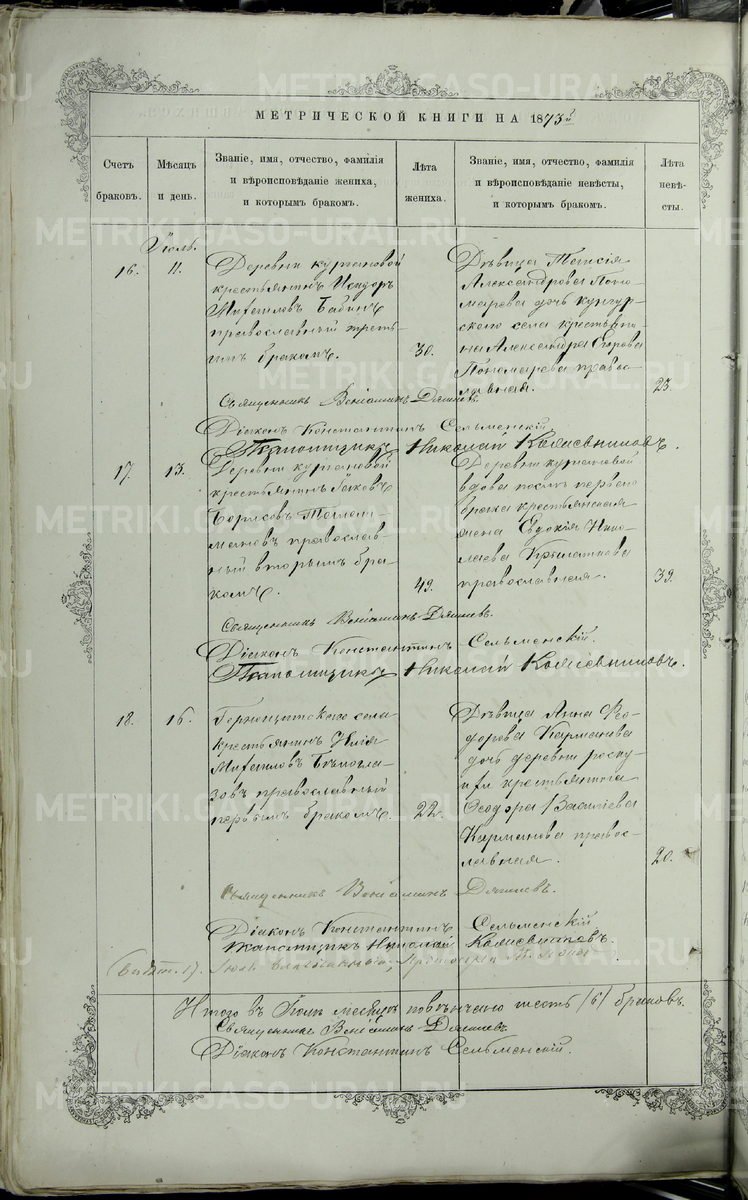 МЕТРИЧЕСКОЙ КНИГИ НА 1873й
Счетъ браковъ.
Мѣсяцъ и день.
Званіе, имя, отчество, фамилія
и вѣроисповѣданіе жениха,
и которымъ бракомъ.
Лѣта жениха.
Званіе, имя, отчество, фамилія
и вѣроисповѣданіе невѣсты,
и которымъ бракомъ.
Лѣта невѣсты.
Іюль.
16.
11.
Деревни Кургановой
крестьянинъ Исидоръ
Михаиловъ Бабинъ
православный треть-
имъ бракомъ.
30.
Дѣвица Таисія
Александрова Поно-
марева дочь Кунгур-
скаго села крестьяни-
на Александра Егорова
Пономарева право-
славная.
23.
Священникъ Веніаминъ
Діаконъ Константинъ Сельменскій
Псаломщикъ Николай
17.
13.
Деревни Кургановой
крестьянинъ Іаковъ
Борисовъ
православ-
ный вторымъ бра-
комъ.
49.
Деревни Кургановой
вдова послѣ перваго
брака крестьянская
жена Евдокія Нико-
лаева
православная.
39.
Священникъ Веніаминъ
Діаконъ Константинъ Сельменскій.
Псаломщикъ Николай
18.
16.
Горнощитскаго села
крестьянинъ Илія
Михаиловъ Бѣлогла-
зовъ православный
первымъ бракомъ.
22.
Дѣвица Анна Ѳео-
дорова Карманова
дочь деревни
крестьянина
Ѳеодора Василіева
Карманова правос-
лавная.
20.
Священникъ Веніаминъ
Діаконъ Константинъ Сельменскій
Псаломщикъ Николай
Итого въ Іюлѣ месяцѣ повѣнчано шесть /6/ браковъ.
Священникъ Веніаминъ
Діаконъ Константинъ Сельменскій.
METRIKI.GASO-URAL.RU